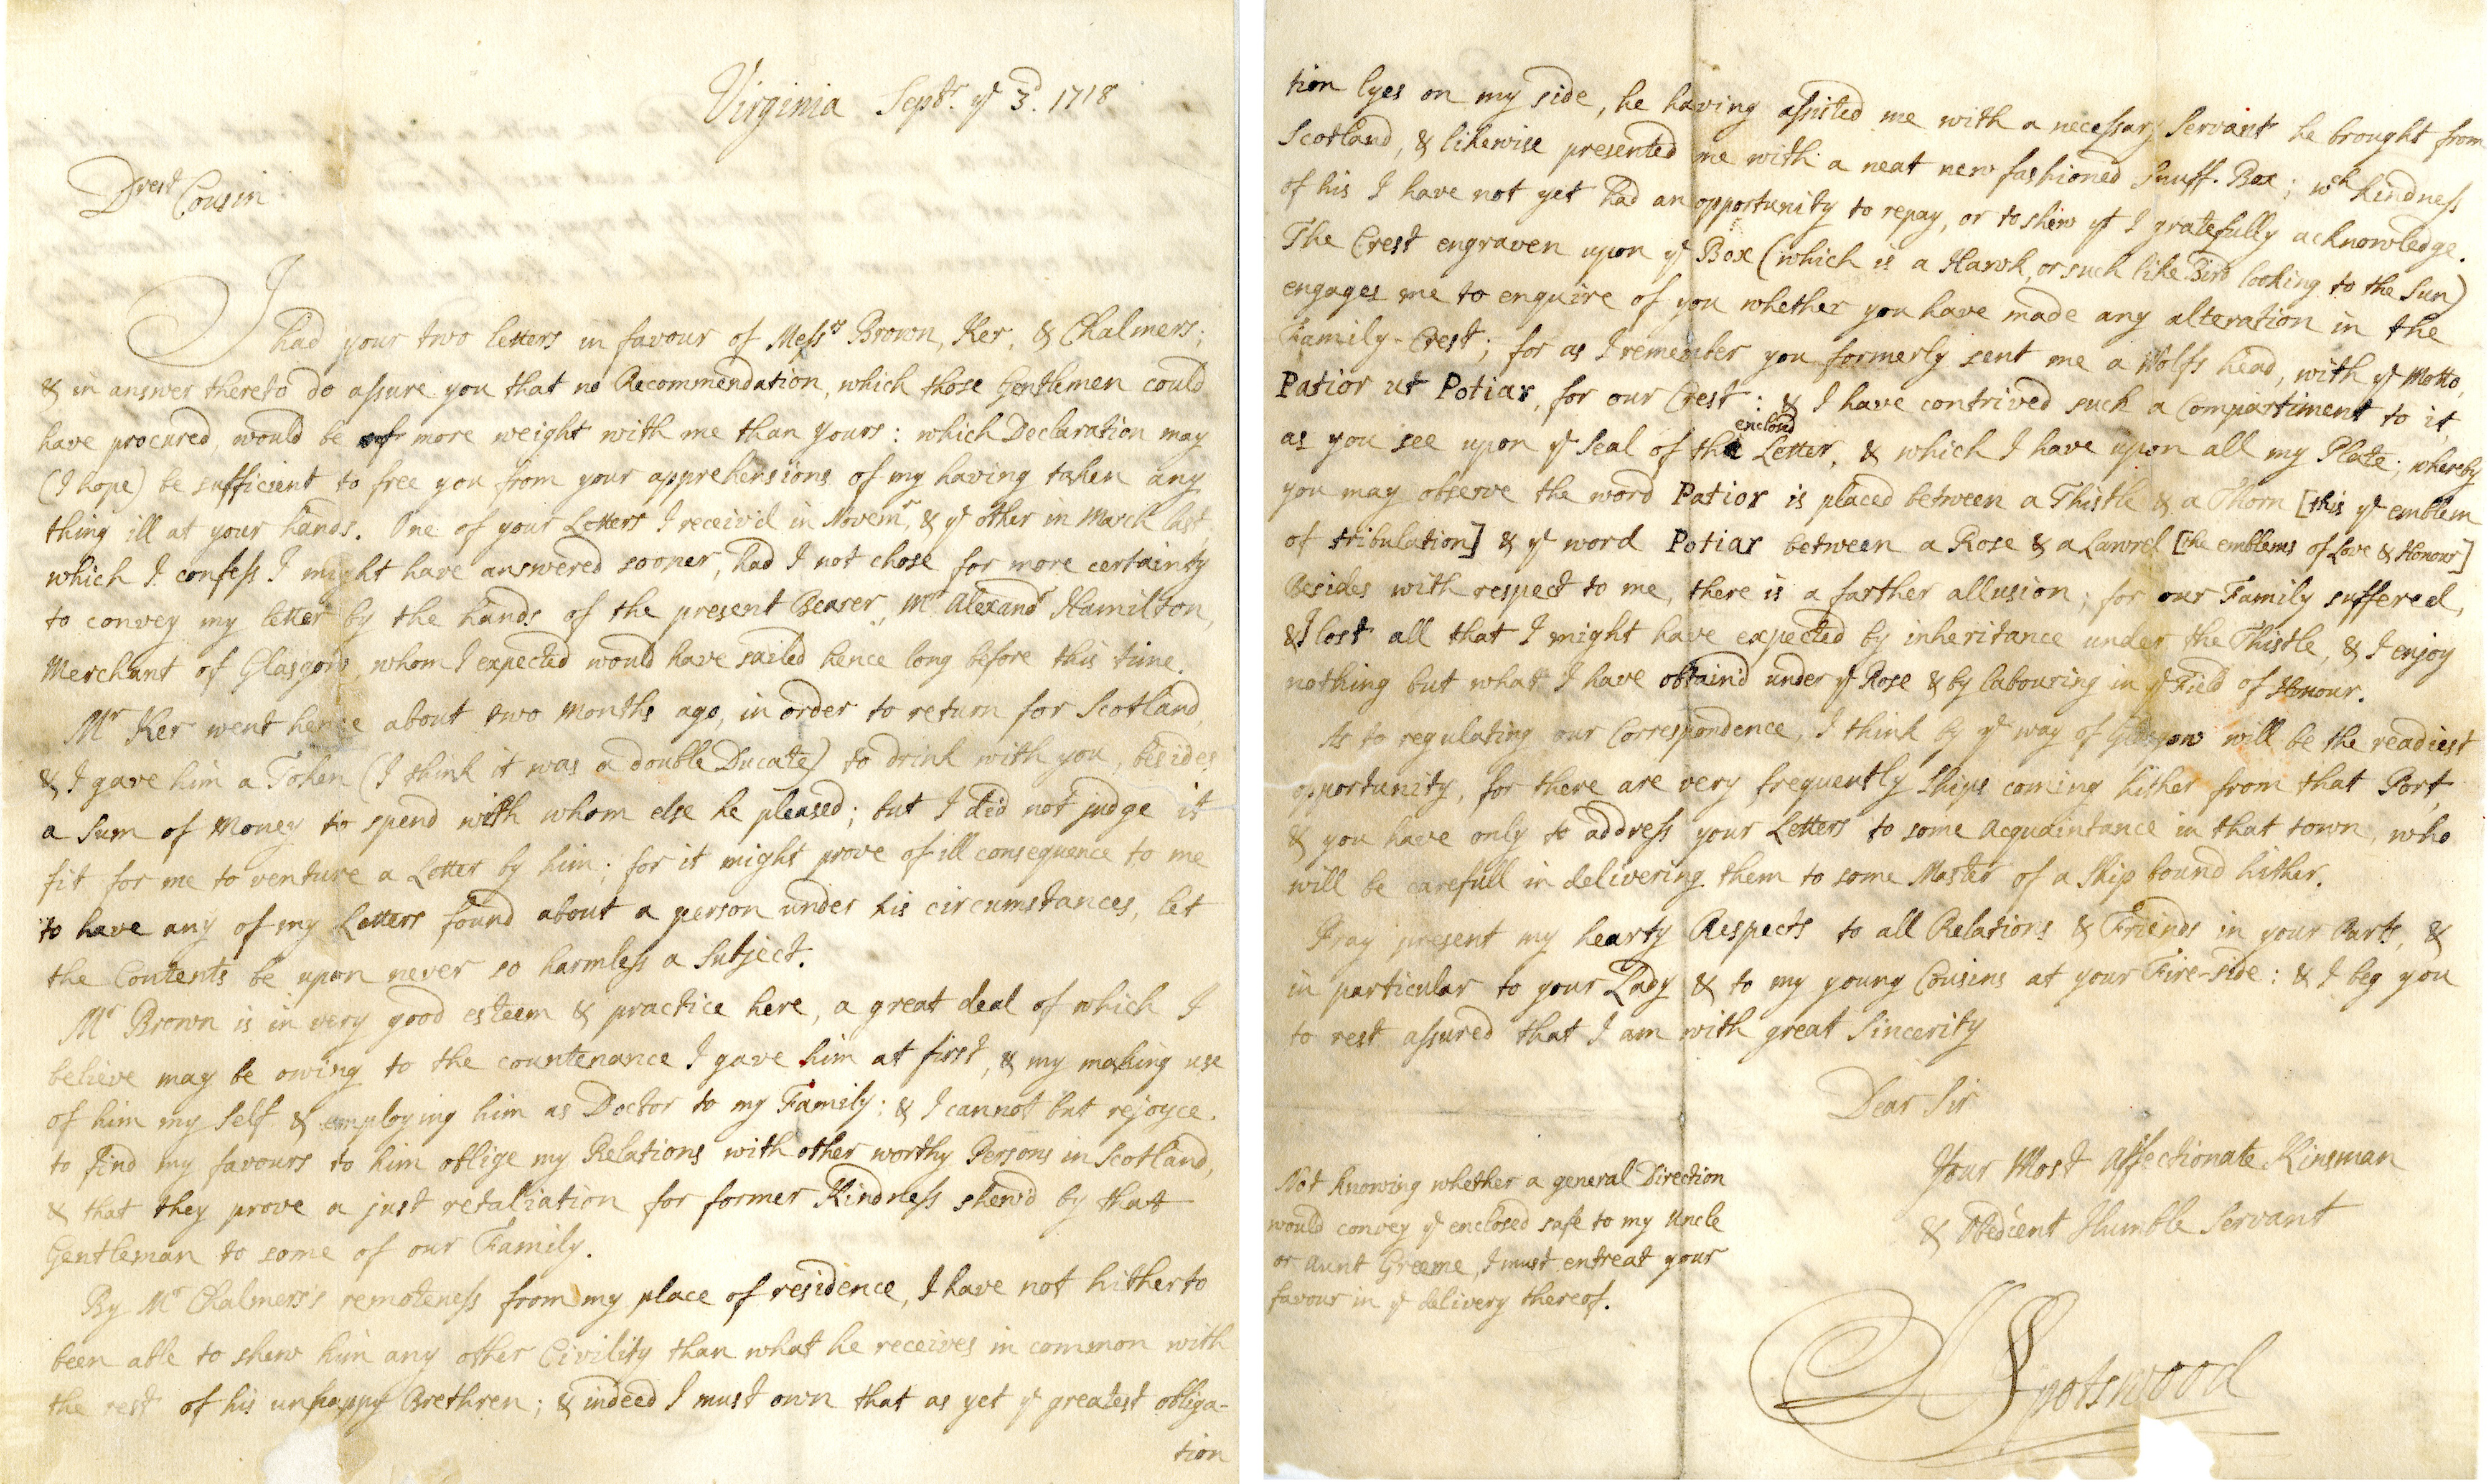 Virginia Septr. ye 3d. 1718
Drest Cousin
I had your two letters in favour of Messrs Brown, Ker, & Chalmers;
& in answer thereto do assure you that no Recommendation, which those Gentlemen could
have procured, would be of more weight with me than yours: which Declaration may
(I hope) be sufficient to free you from your apprehensions of my having taken any
thing ill at your hands. One of your Letters I receiv'd in Novemr, & ye other in March last,
which I confess I might have answered sooner, had I not chose for more certainty
to convey my letter by the hands of the present Bearer, Mr Alexandr Hamilton,
Merchant of Glasgow, whom I expected would have sailed hence long before this time.
Mr Ker went hence about two Months ago, in order to return for Scotland,
& I gave him a Token (I think it was a double Ducate) to drink with you, besides
a Sum of Money to spend with whom else he pleased; but I did not judge it
fit for me to venture a Letter by him; for it might prove of ill consequence to me
to have any of my Letters found about a person under his circumstances, let
the Contents be upon never so harmless a Subject.
Mr Brown is in very good esteem & practice here, a great deal of which I
believe may be owing to the countenance I gave him at first, & my making use
of him my Self & employing him as Doctor to my Family; & I cannot but rejoyce
to find my favours to him oblige my Relations with other worthy Persons in Scotland,
& that they prove a just retaliation for former Kindness shew'd by that
Gentleman to some of our Family.
By Mr Chalmers's remoteness from my place of residence, I have not hitherto
been able to shew him any other Civility than what he receives in common with
the rest of his unhappy Brethren; & indeed I must own that as yet ye greatest obliga-
tion
tion lyes on my side, he having assisted me with a necessary Servant he brought from
Scotland, & likewise presented me with a neat new fashioned Snuff-Box; wch Kindness
of his I have not yet had an opportunity to repay, or to shew yt I gratefully acknowledge.
The Crest engraven upon ye Box (which is a Hawk, or such like Bird looking to the Sun)
engages me to enquire of you whether you have made any alteration in the
Family-Crest; for as I remember you formerly sent me a Wolfs head, with ye Motto,
Patior ut Potiar, for our Crest: & I have contrived such a Compartiment to it,
enclos'd
as you see upon ye Seal of the Letter, & which I have upon all my Plate; whereby
you may observe the word Patior is placed between a Thistle & a Thorn [this ye emblem
of tribulation] & ye word Potiar between a Rose & a Lawrel [the emblems of Love & Honour]
Besides with respect to me, there is a farther allusion; for our Family suffered,
& I lost all that I might have expected by inheritance under the Thistle, & I enjoy
nothing but what I have obtain'd under ye Rose & by labouring in ye Field of Honour.
As to regulating our Correspondence, I think by ye way of Glasgow will be the readiest
opportunity, for there are very frequently Ships coming hither from that Port,
& you have only to address your Letters to some Acquaintance in that town, who
will be carefull in delivering them to some Master of a Ship bound hither.
Pray present my hearty Respects to all Relations & Friends in your Parts, &
in particular to your Lady & to my young Cousins at your Fire-side: & I beg you
to rest assured that I am with great Sincerity
Dear Sir
Your Most Affectionate Kinsman
& Obedient Humble Servant
A Spotswood
Not knowing whether a general Direction
would convey ye enclosed safe to my Uncle
or Aunt Greeme, I must entreat your
favour in ye delivery thereof.